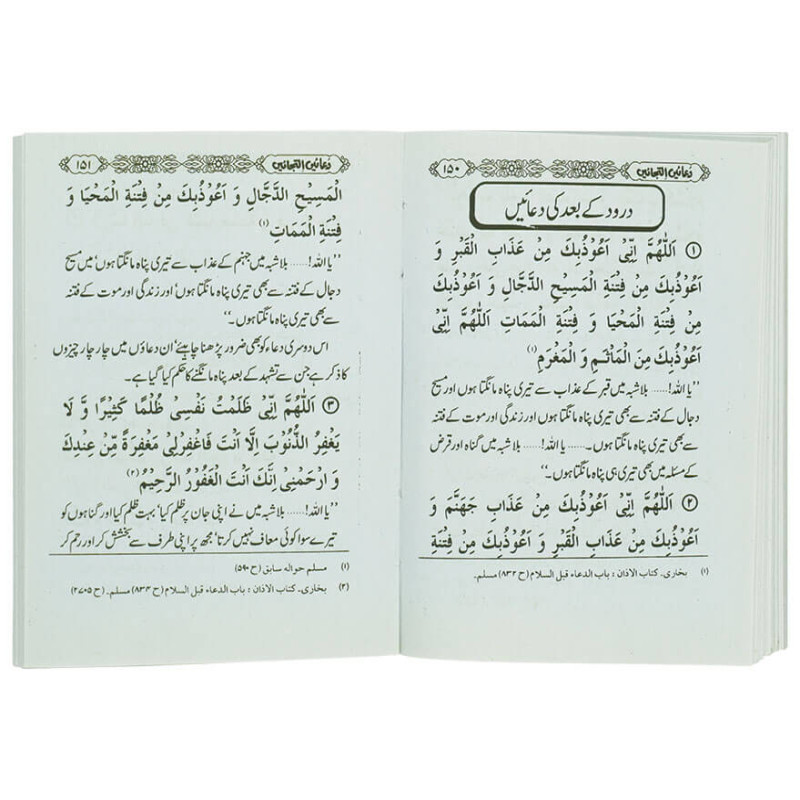 دعائیں التجائیں
۱۵۰
درود کے بعد کی دعائیں
① اَللّٰهُمَّ اِنِّىْ اَعُوْذُبِكَ مِنْ عَذَابِ الْقَبْرِ وَ
اَعُوْذُبِكَ مِنْ فِتْنَةِ الْمَسِيْحِ الدَّجَّالِ وَ اَعُوْذُبِكَ
مِنْ فِتْنَةِ الْمَحْيَا وَ فِتْنَةِ الْمَمَاتِ اَللّٰهُمَّ اِنِّىْ
اَعُوْذُبِكَ مِنَ الْمَاْثَمِ وَ الْمَغْرَمِ (۱)
”یا اللہ!...... بلاشبہ میں قبر کے عذاب سے تیری پناہ مانگتا ہوں اور مسیح
دجال کے فتنہ سے بھی تیری پناہ مانگتا ہوں اور زندگی اور موت کے فتنہ
سے بھی تیری پناہ مانگتا ہوں۔...... یا اللہ!...... بلاشبہ میں گناہ اور قرض
کے مسئلہ میں بھی تیری ہی پناہ مانگتا ہوں۔“
② اَللّٰهُمَّ اِنِّىْ اَعُوْذُبِكَ مِنْ عَذَابِ جَهَنَّمَ وَ
اَعُوْذُبِكَ مِنْ عَذَابِ الْقَبْرِ وَ اَعُوْذُبِكَ مِنْ فِتْنَةِ
(۱) بخاری۔ کتاب الاذان : باب الدعاء قبل السلام (ح ۸۳۲) مسلم۔
دعائیں التجائیں
۱۵۱
الْمَسِيْحِ الدَّجَّالِ وَ اَعُوْذُبِكَ مِنْ فِتْنَةِ الْمَحْيَا وَ
فِتْنَةِ الْمَمَاتِ (۱)
”یا اللہ!...... بلاشبہ میں جہنم کے عذاب سے تیری پناہ مانگتا ہوں‘ میں مسیح
دجال کے فتنہ سے بھی تیری پناہ مانگتا ہوں‘ اور زندگی اور موت کے فتنہ
سے بھی تیری پناہ مانگتا ہوں۔“
اس دوسری دعاء کو بھی ضرور پڑھنا چاہیئے‘ ان دعاؤں میں چار چار چیزوں
کا ذکر ہے جن سے تشہد کے بعد پناہ مانگنے کا حکم کیا گیا ہے۔
③ اَللّٰهُمَّ اِنِّىْ ظَلَمْتُ نَفْسِىْ ظُلْمًا كَثِيْرًا وَّ لَا
يَغْفِرُ الذُّنُوْبَ اِلَّا اَنْتَ فَاغْفِرْلِىْ مَغْفِرَةً مِّنْ عِنْدِكَ
وَ ارْحَمْنِىْ اِنَّكَ اَنْتَ الْغَفُوْرُ الرَّحِيْمُ (۲)
”یا اللہ!...... بلاشبہ میں نے اپنی جان پر ظلم کیا‘ بہت ظلم کیا اور گناہوں کو
تیرے سوا کوئی معاف نہیں کرتا‘ مجھ پر اپنی طرف سے بخشش کر اور رحم کر
(۱) مسلم حوالہ سابق (ح ۵۹۰)
(۲) بخاری۔ کتاب الاذان : باب الدعاء قبل السلام (ح ۸۳۴) مسلم۔ (ح ۲۷۰۵)